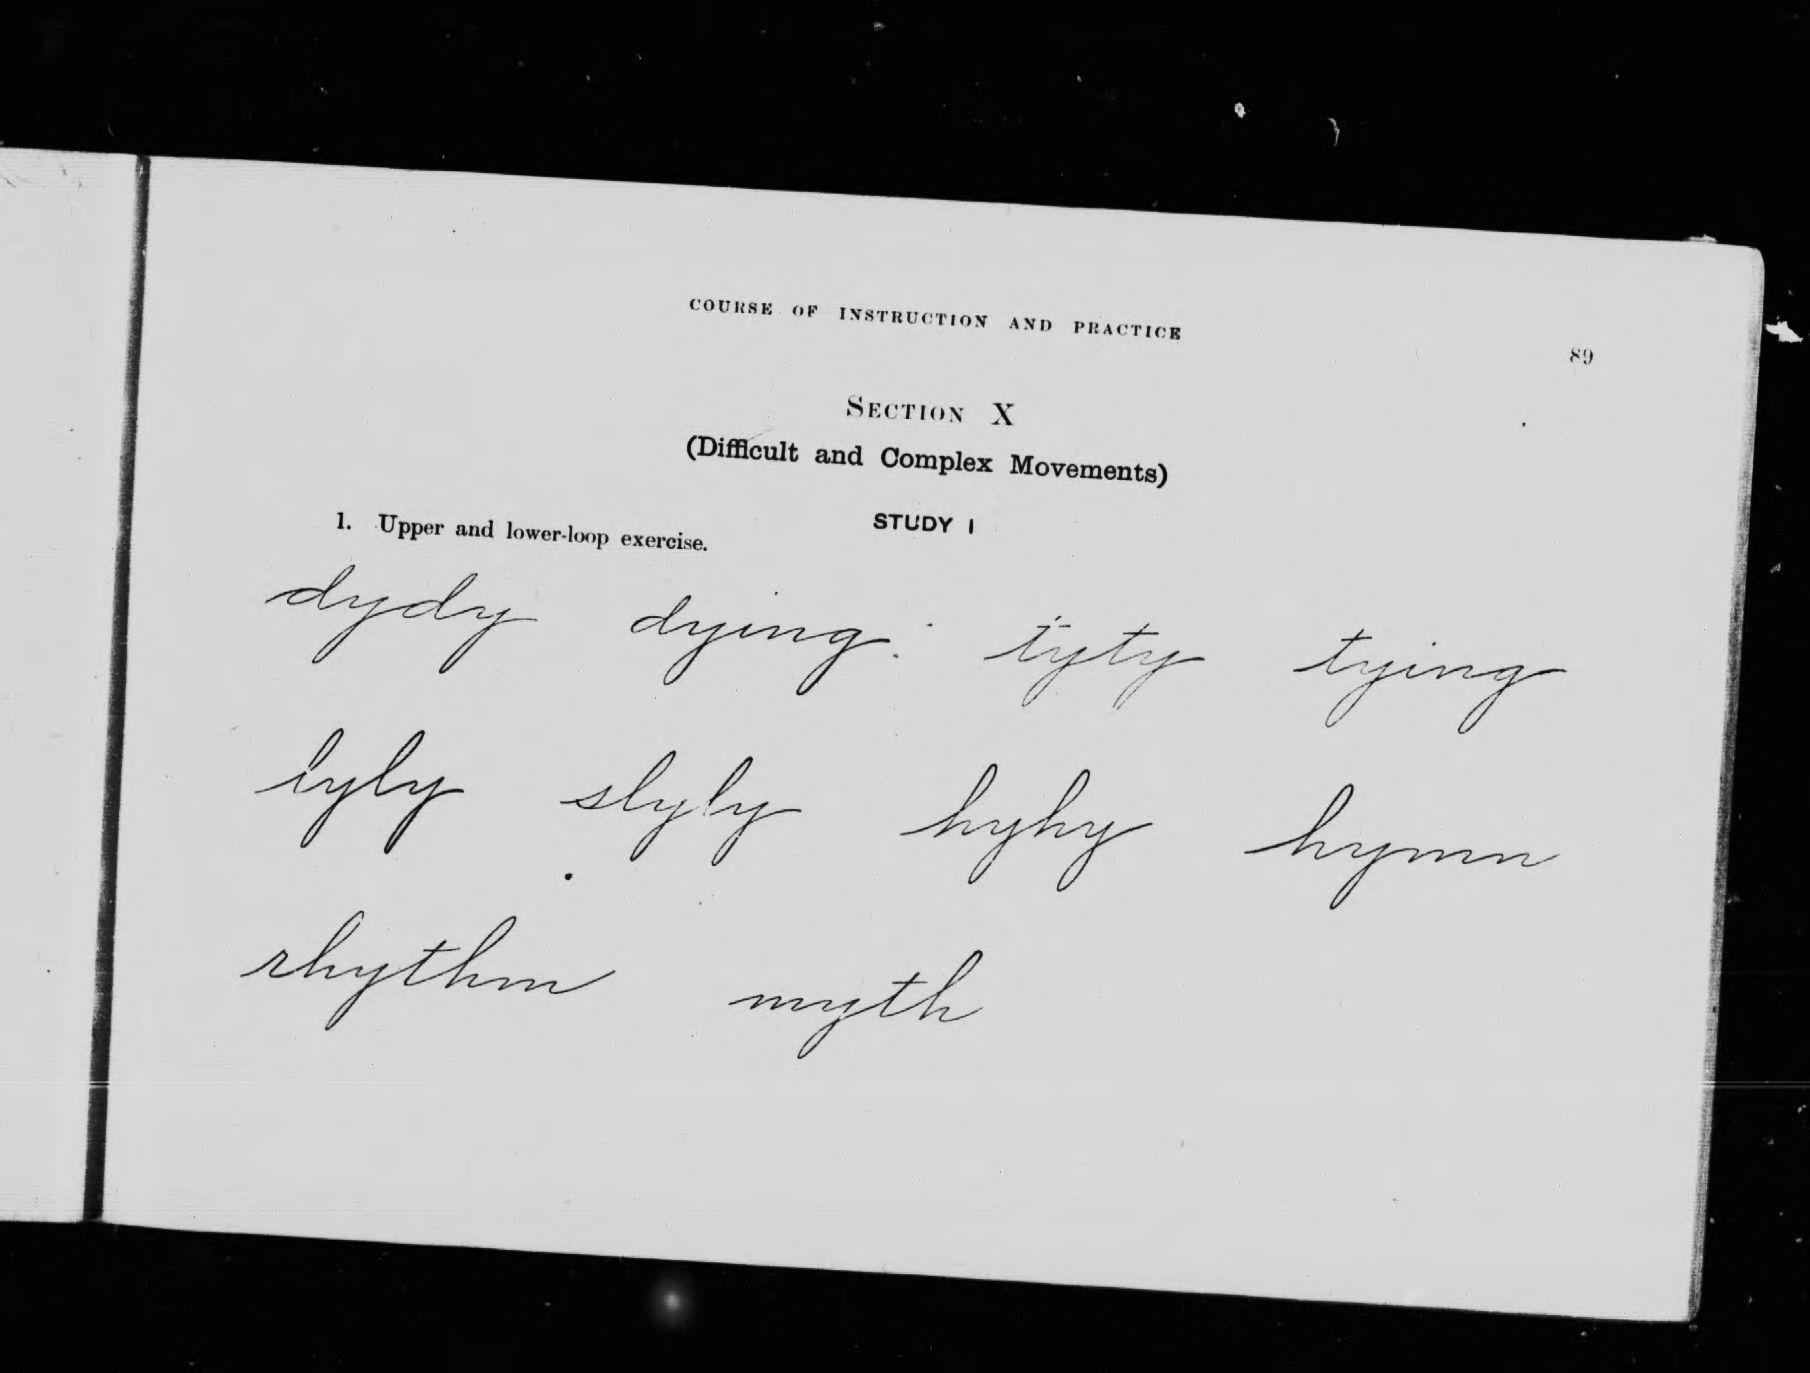 COURSE OF INSTRUCTION AND PRACTICE 89
SECTION X
(Difficult and Complex Movements)
STUDY I
1. Upper and lower-loop exercise.
dydy dying tyty tying
lyly slyly hyhy hymn
rhythm myth